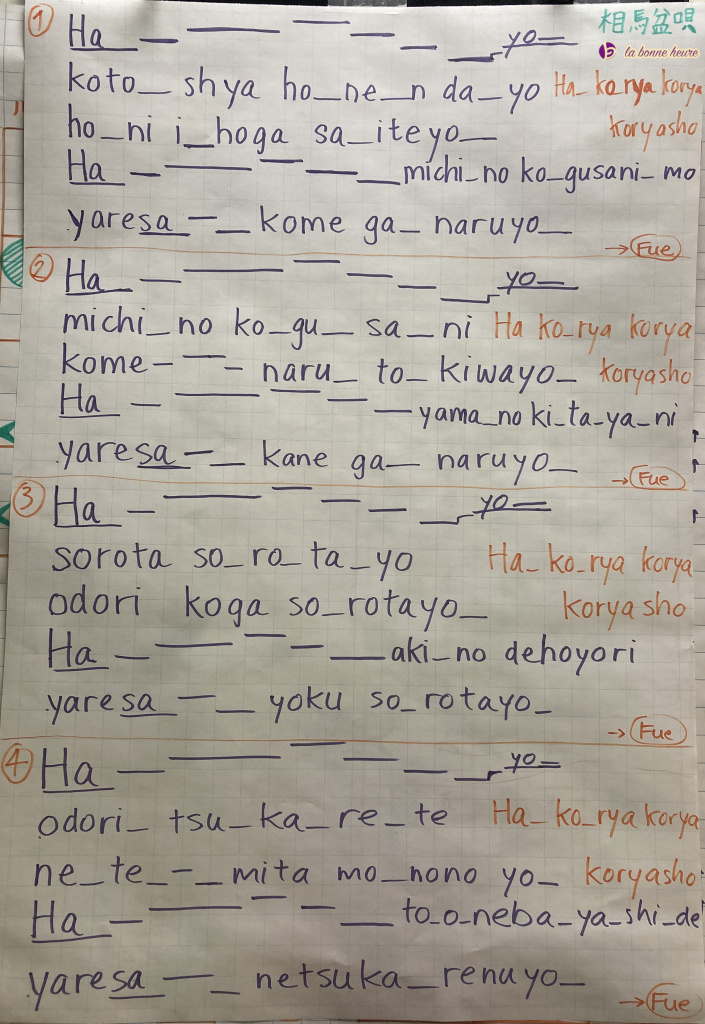 ① Ha — — — — — — yo— 相馬盆唄
la bonne heure
koto_ shya ho_ne_n da_yo Ha_ ko_rya korya
ho_ni i_hoga sa_iteyo_ koryasho
Ha — — — — — michi_no ko_gusani_mo
yaresa — _ kome ga_ naruyo_
→ Fue
② Ha — — — — — — yo—
michi_no ko_gu_ sa_ni Ha ko_rya korya
kome - — - naru_ to_ kiwayo_ koryasho
Ha — — — — — yama_no ki_ta_ya_ni
yaresa — _ kane ga_ naruyo_
→ Fue
③ Ha — — — — — — yo—
sorota so_ro_ta_yo Ha_ ko_rya korya
odori koga so_rotayo_ koryasho
Ha — — — — — aki_no dehoyori
yaresa — _ yoku so_rotayo_
→ Fue
④ Ha — — — — — — yo—
odori_ tsu_ka_re_te Ha_ ko_rya korya
ne_te_-_mita mo_nono yo_ koryasho
Ha — — — — — to_o_neba_ya_shi_de
yaresa — _ netsuka_renuyo_
→ Fue